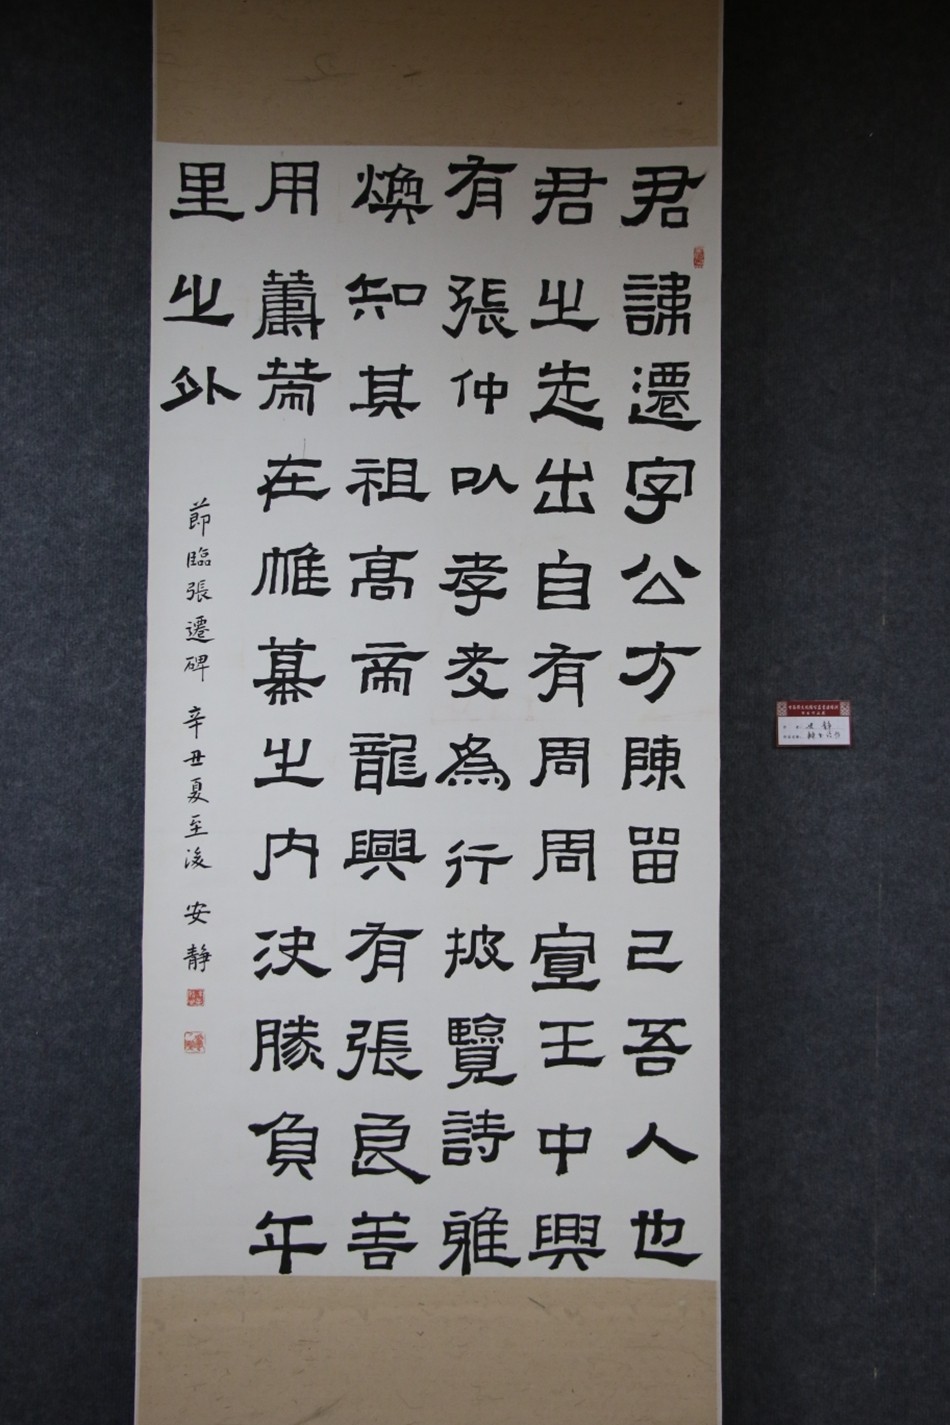 君諱遷字公方陳留己吾人也
君之先出自有周周宣王中興
有張仲以孝友為行披覽詩雅
煥知其祖高帝龍興有張良善
用籌策在帷幕之內決勝負千
里之外
節臨張遷碑 辛丑夏至後 安靜